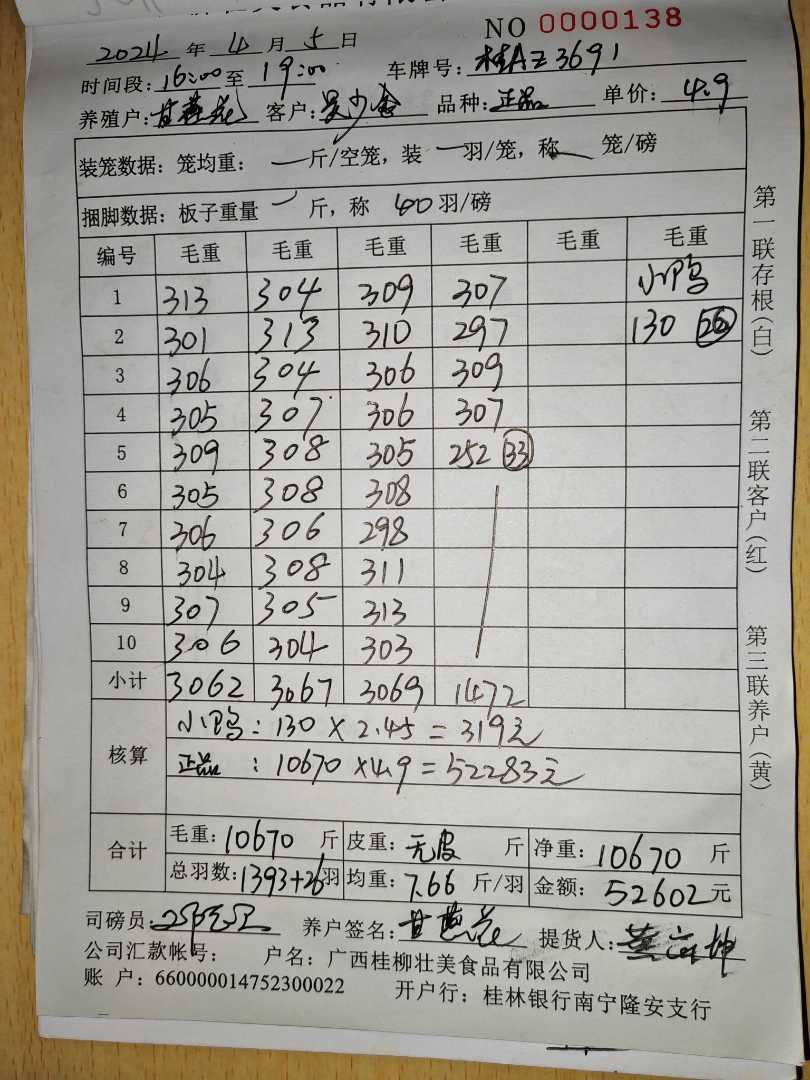 NO 0000138
2024 年 4 月 5 日
时间段: 16:00 至 19:00 车牌号: 桂AZ3691
养殖户: 甘燕花 客户: 吴少金 品种: 正品 单价: 4.9
装笼数据: 笼均重: — 斤/空笼, 装 — 羽/笼, 称 — 笼/磅
捆脚数据: 板子重量 — 斤, 称 40 羽/磅
编号 毛重 毛重 毛重 毛重 毛重 毛重
1 313 304 309 307 小鸭
2 301 313 310 297 130 26
3 306 304 306 309
4 305 307 306 307
5 309 308 305 252 33
6 305 308 308
7 306 306 298
8 304 308 311
9 307 305 313
10 306 304 303
小计 3062 3067 3069 1472
核算
小鸭: 130 × 2.45 = 319元
正品 : 10670 × 4.9 = 52283元
合计
毛重: 10670 斤 皮重: 无皮 斤 净重: 10670 斤
总羽数: 1393+26 羽 均重: 7.66 斤/羽 金额: 52602 元
司磅员: 养户签名: 甘燕花 提货人:
公司汇款帐号: 户名: 广西桂柳壮美食品有限公司
账 户: 660000014752300022 开户行: 桂林银行南宁隆安支行
第一联存根(白) 第二联客户(红) 第三联养户(黄)